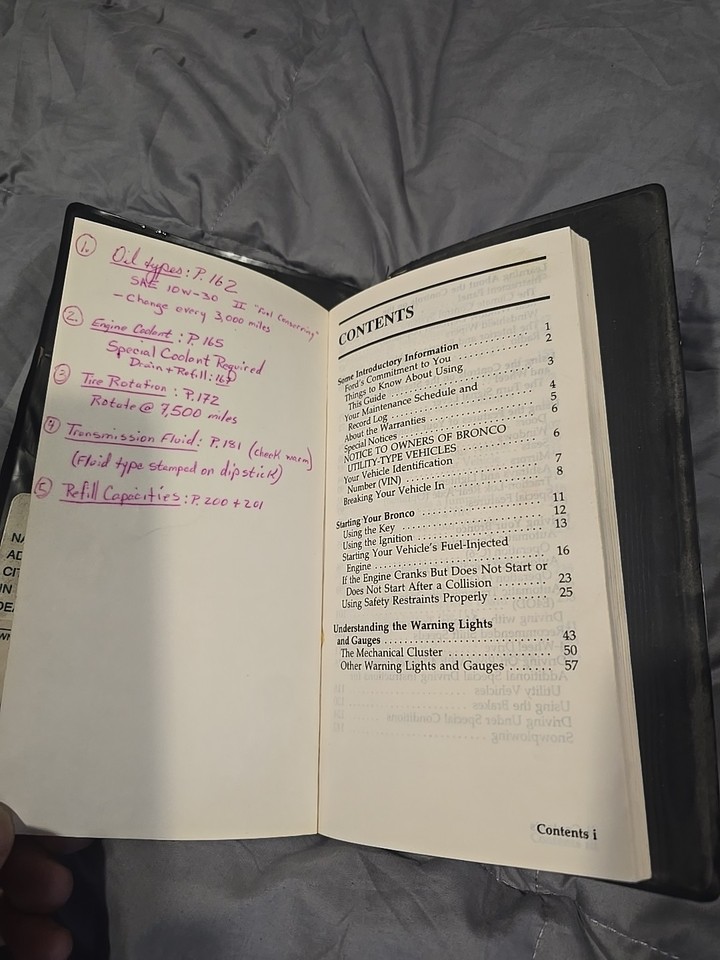 1. Oil types: P. 162
SAE 10w-30 II "Fuel Conserving"
- Change every 3,000 miles
2. Engine Coolant: P. 165
Special Coolant Required
Drain + Refill: 167
3 Tire Rotation: P. 172
Rotate @ 7,500 miles
4 Transmission Fluid: P. 181 (check warm)
(Fluid type stamped on dipstick)
5 Refill Capacities: P. 200 + 201
NA
AD
CIT
IN
DEA
CONTENTS
Some Introductory Information 1
Ford's Commitment to You 2
Things to Know About Using
This Guide 3
Your Maintenance Schedule and
Record Log 4
About the Warranties 5
Special Notices 6
NOTICE TO OWNERS OF BRONCO
UTILITY-TYPE VEHICLES 6
Your Vehicle Identification
Number (VIN) 7
Breaking Your Vehicle In 8
Starting Your Bronco 11
Using the Key 12
Using the Ignition 13
Starting Your Vehicle's Fuel-Injected
Engine 16
If the Engine Cranks But Does Not Start or
Does Not Start After a Collision 23
Using Safety Restraints Properly 25
Understanding the Warning Lights
and Gauges 43
The Mechanical Cluster 50
Other Warning Lights and Gauges 57
Contents i